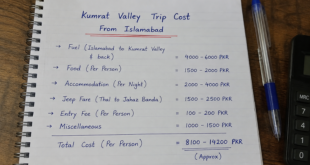 Kumrat Valley Trip Cost
From Islamabad
→ Fuel (Islamabad to Kumrat Valley & back) = 4000 - 6000 PKR
→ Food (Per Person) = 1500 - 2000 PKR
→ Accommodation (Per Night) = 2000 - 4000 PKR
→ Jeep Fare (Thal to Jahaz Banda) = 1500 - 2500 PKR
→ Entry Fee (Per Person) = 100 - 200 PKR
→ Miscellaneous = 1000 - 1500 PKR
Total Cost (Per Person) = 8100 - 14200 PKR
(Approx)